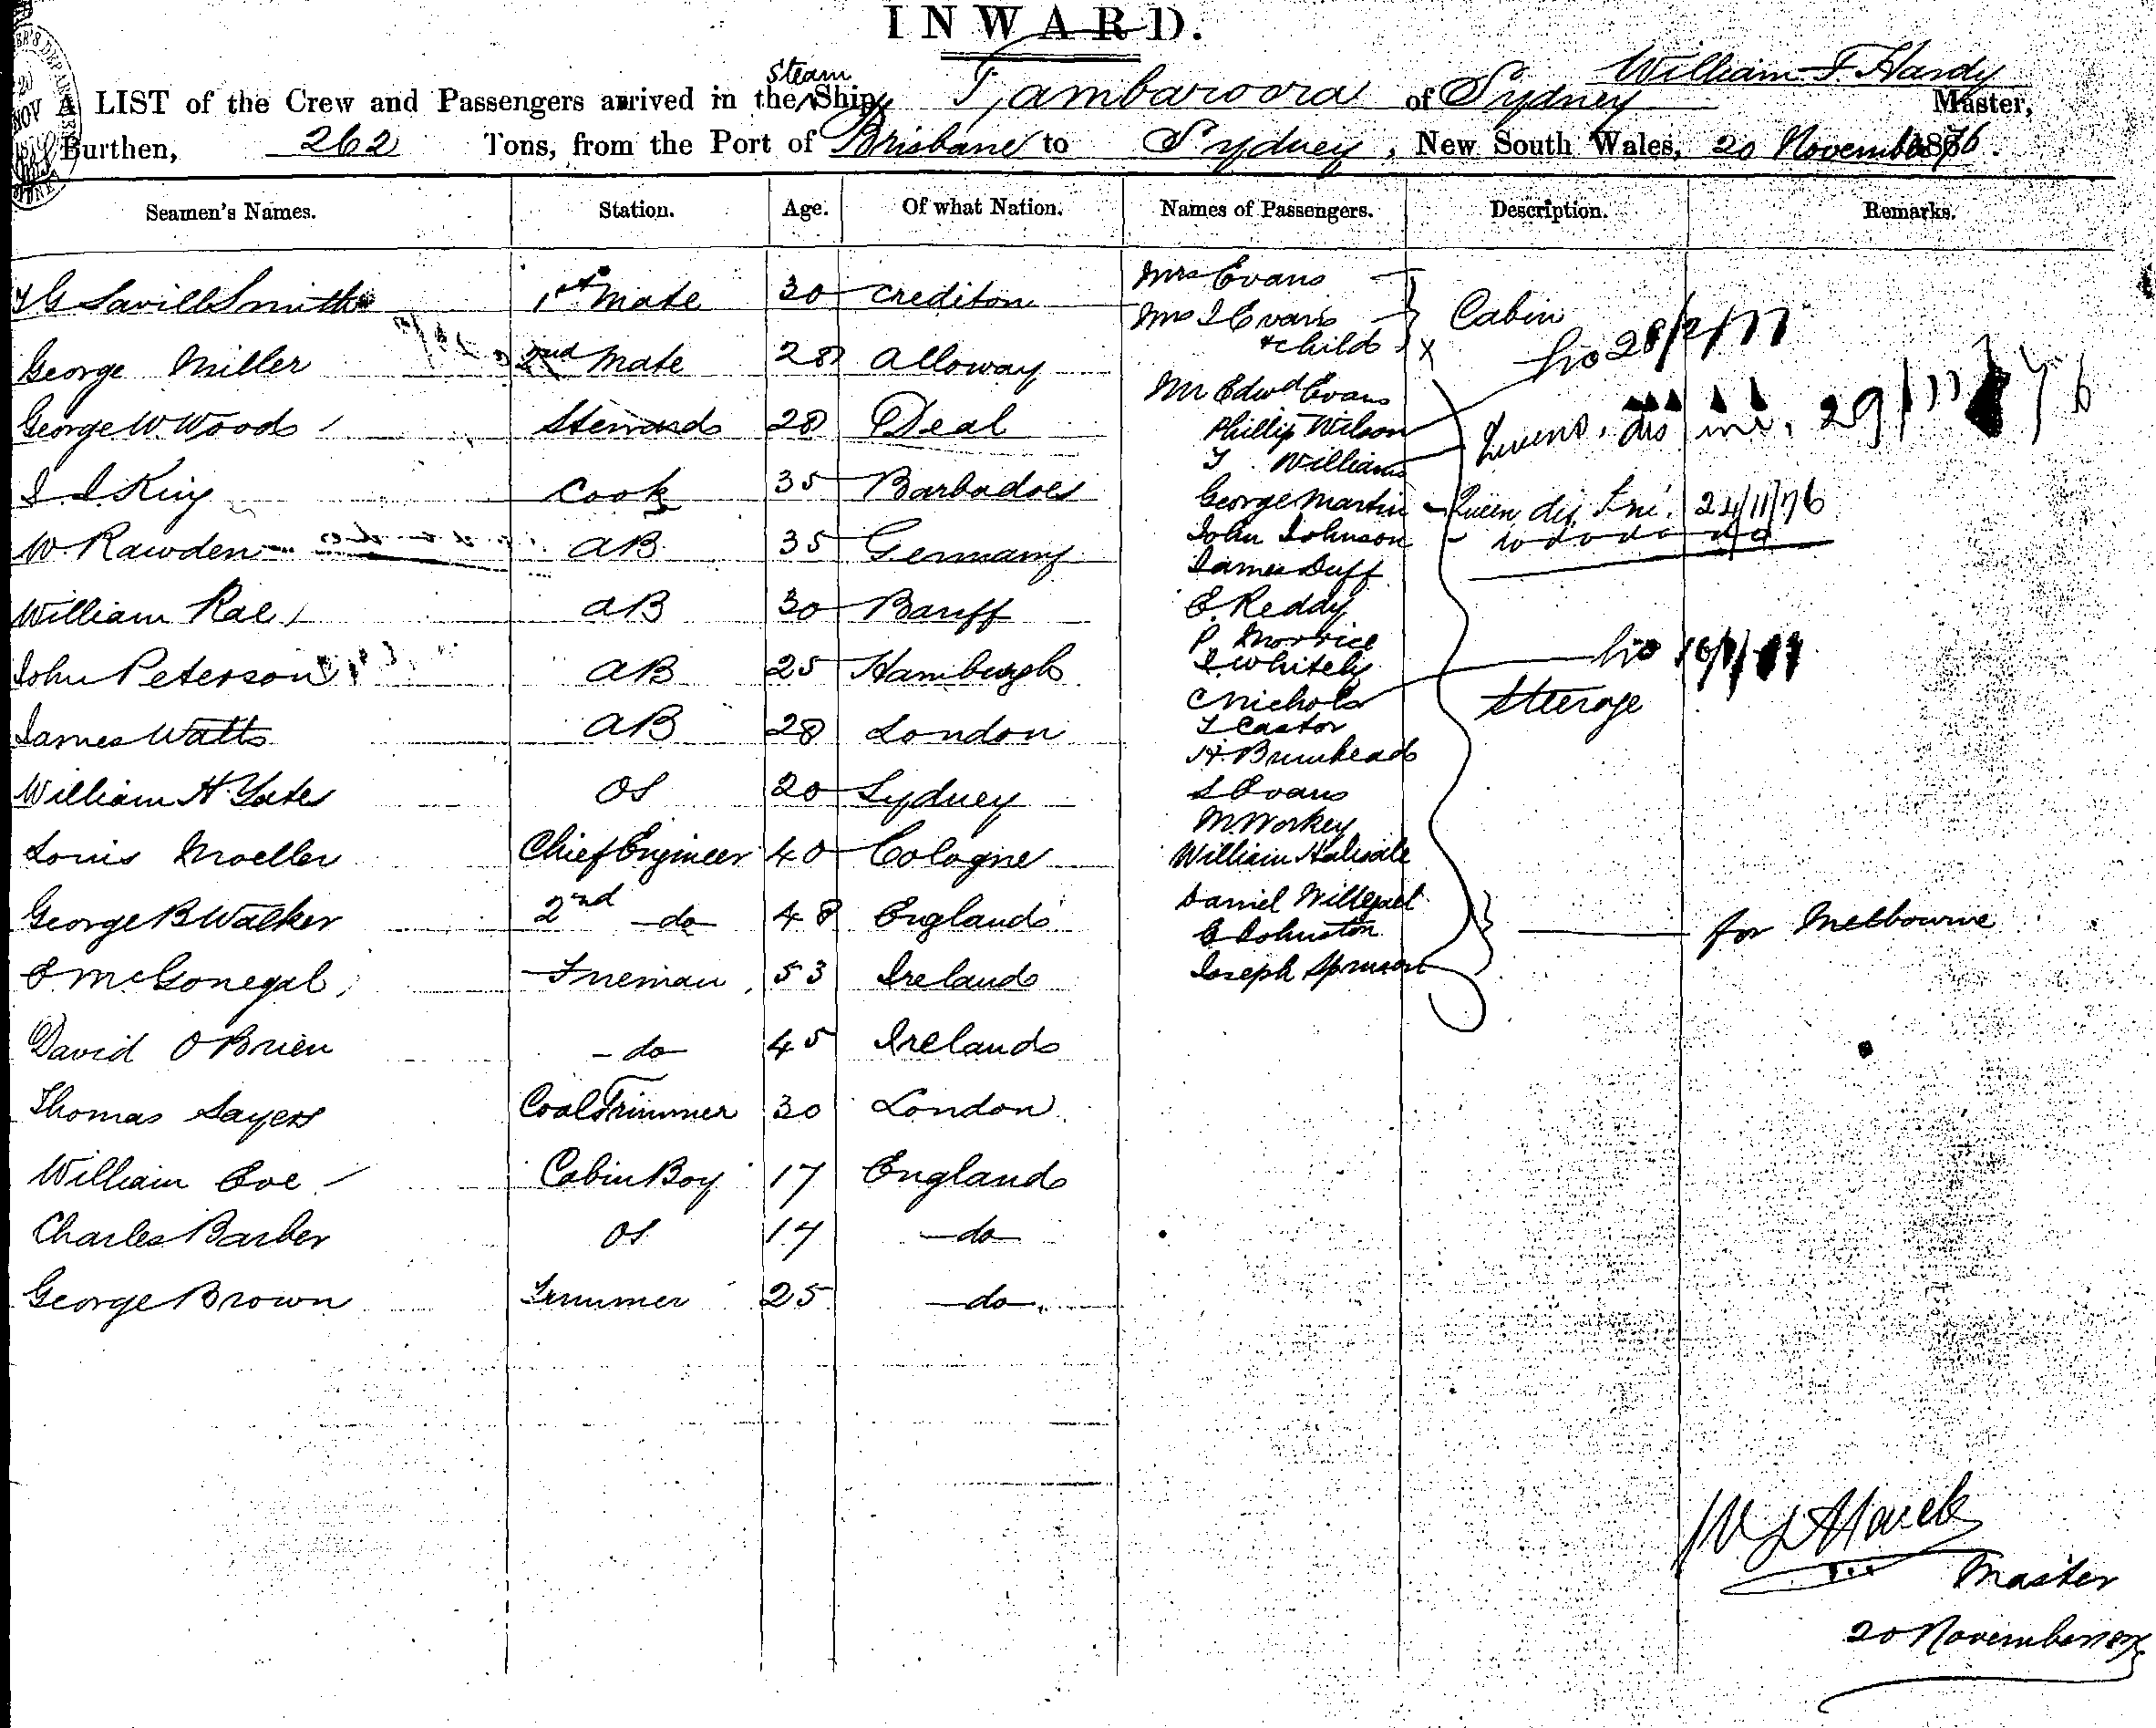 INWARD.
William F. Hardy
A LIST of the Crew and Passengers arrived in the Steam Ship Tambaroora of Sydney Master,
Burthen, 262 Tons, from the Port of Brisbane to Sydney, New South Wales, 20 November 1876.
Seamen's Names. Station. Age. Of what Nation. Names of Passengers. Description. Remarks.
Savill Smith 1st Mate 30 Crediton Mrs Evans
Mrs J Evans Cabin
& child X
George Miller 2nd Mate 28 Alloway 28/2/77
Mr Edwd Evans
George W. Wood Steward 28 Deal Phillip Wilson
Williams 29/11/76
J. J. King Cook 35 Barbadoes George Martin Queen dis. 24/11/76
W. Rawden AB 35 Germany John Johnson do do
James Duff
William Rae AB 30 Banff E. Reddy
P. Morrice
John Peterson AB 25 Hamburgh J. Whitely
C Nichols Steerage
James Watts AB 28 London Castor
H. Brumhead
William H. Yates OS 20 Sydney S Evans
M. Workey
Louis Moeller Chief Engineer 40 Cologne William
George B Walker 2nd do 48 England Daniel
Johnston for Melbourne
E McGonegal Fireman 53 Ireland Joseph
David O Brien do 45 Ireland
Thomas Sayers Coal Trimmer 30 London
William Coe Cabin Boy 17 England
Charles Barber OS 17 do
George Brown Trimmer 25 do
Master
20 November